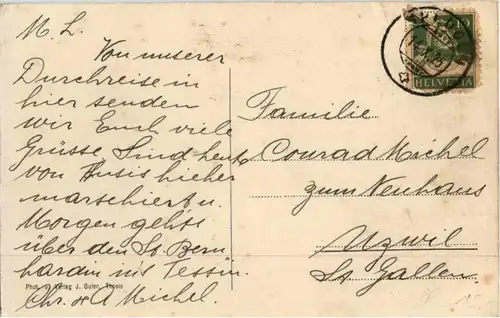 M. L.
Von unserer
Durchreise in
hier senden
wir Euch viele
Grüsse. Sind heute
von Tusis hieher
marschiert u.
Morgen gehts
über den St. Bern
hardin ins Tessin.
Chr. & A Michel.
Phot. u. Verlag J. Guler, Thusis
HELVETIA
Familie
Conrad Michel
zum Neuhaus
Uzwil
St. Gallen